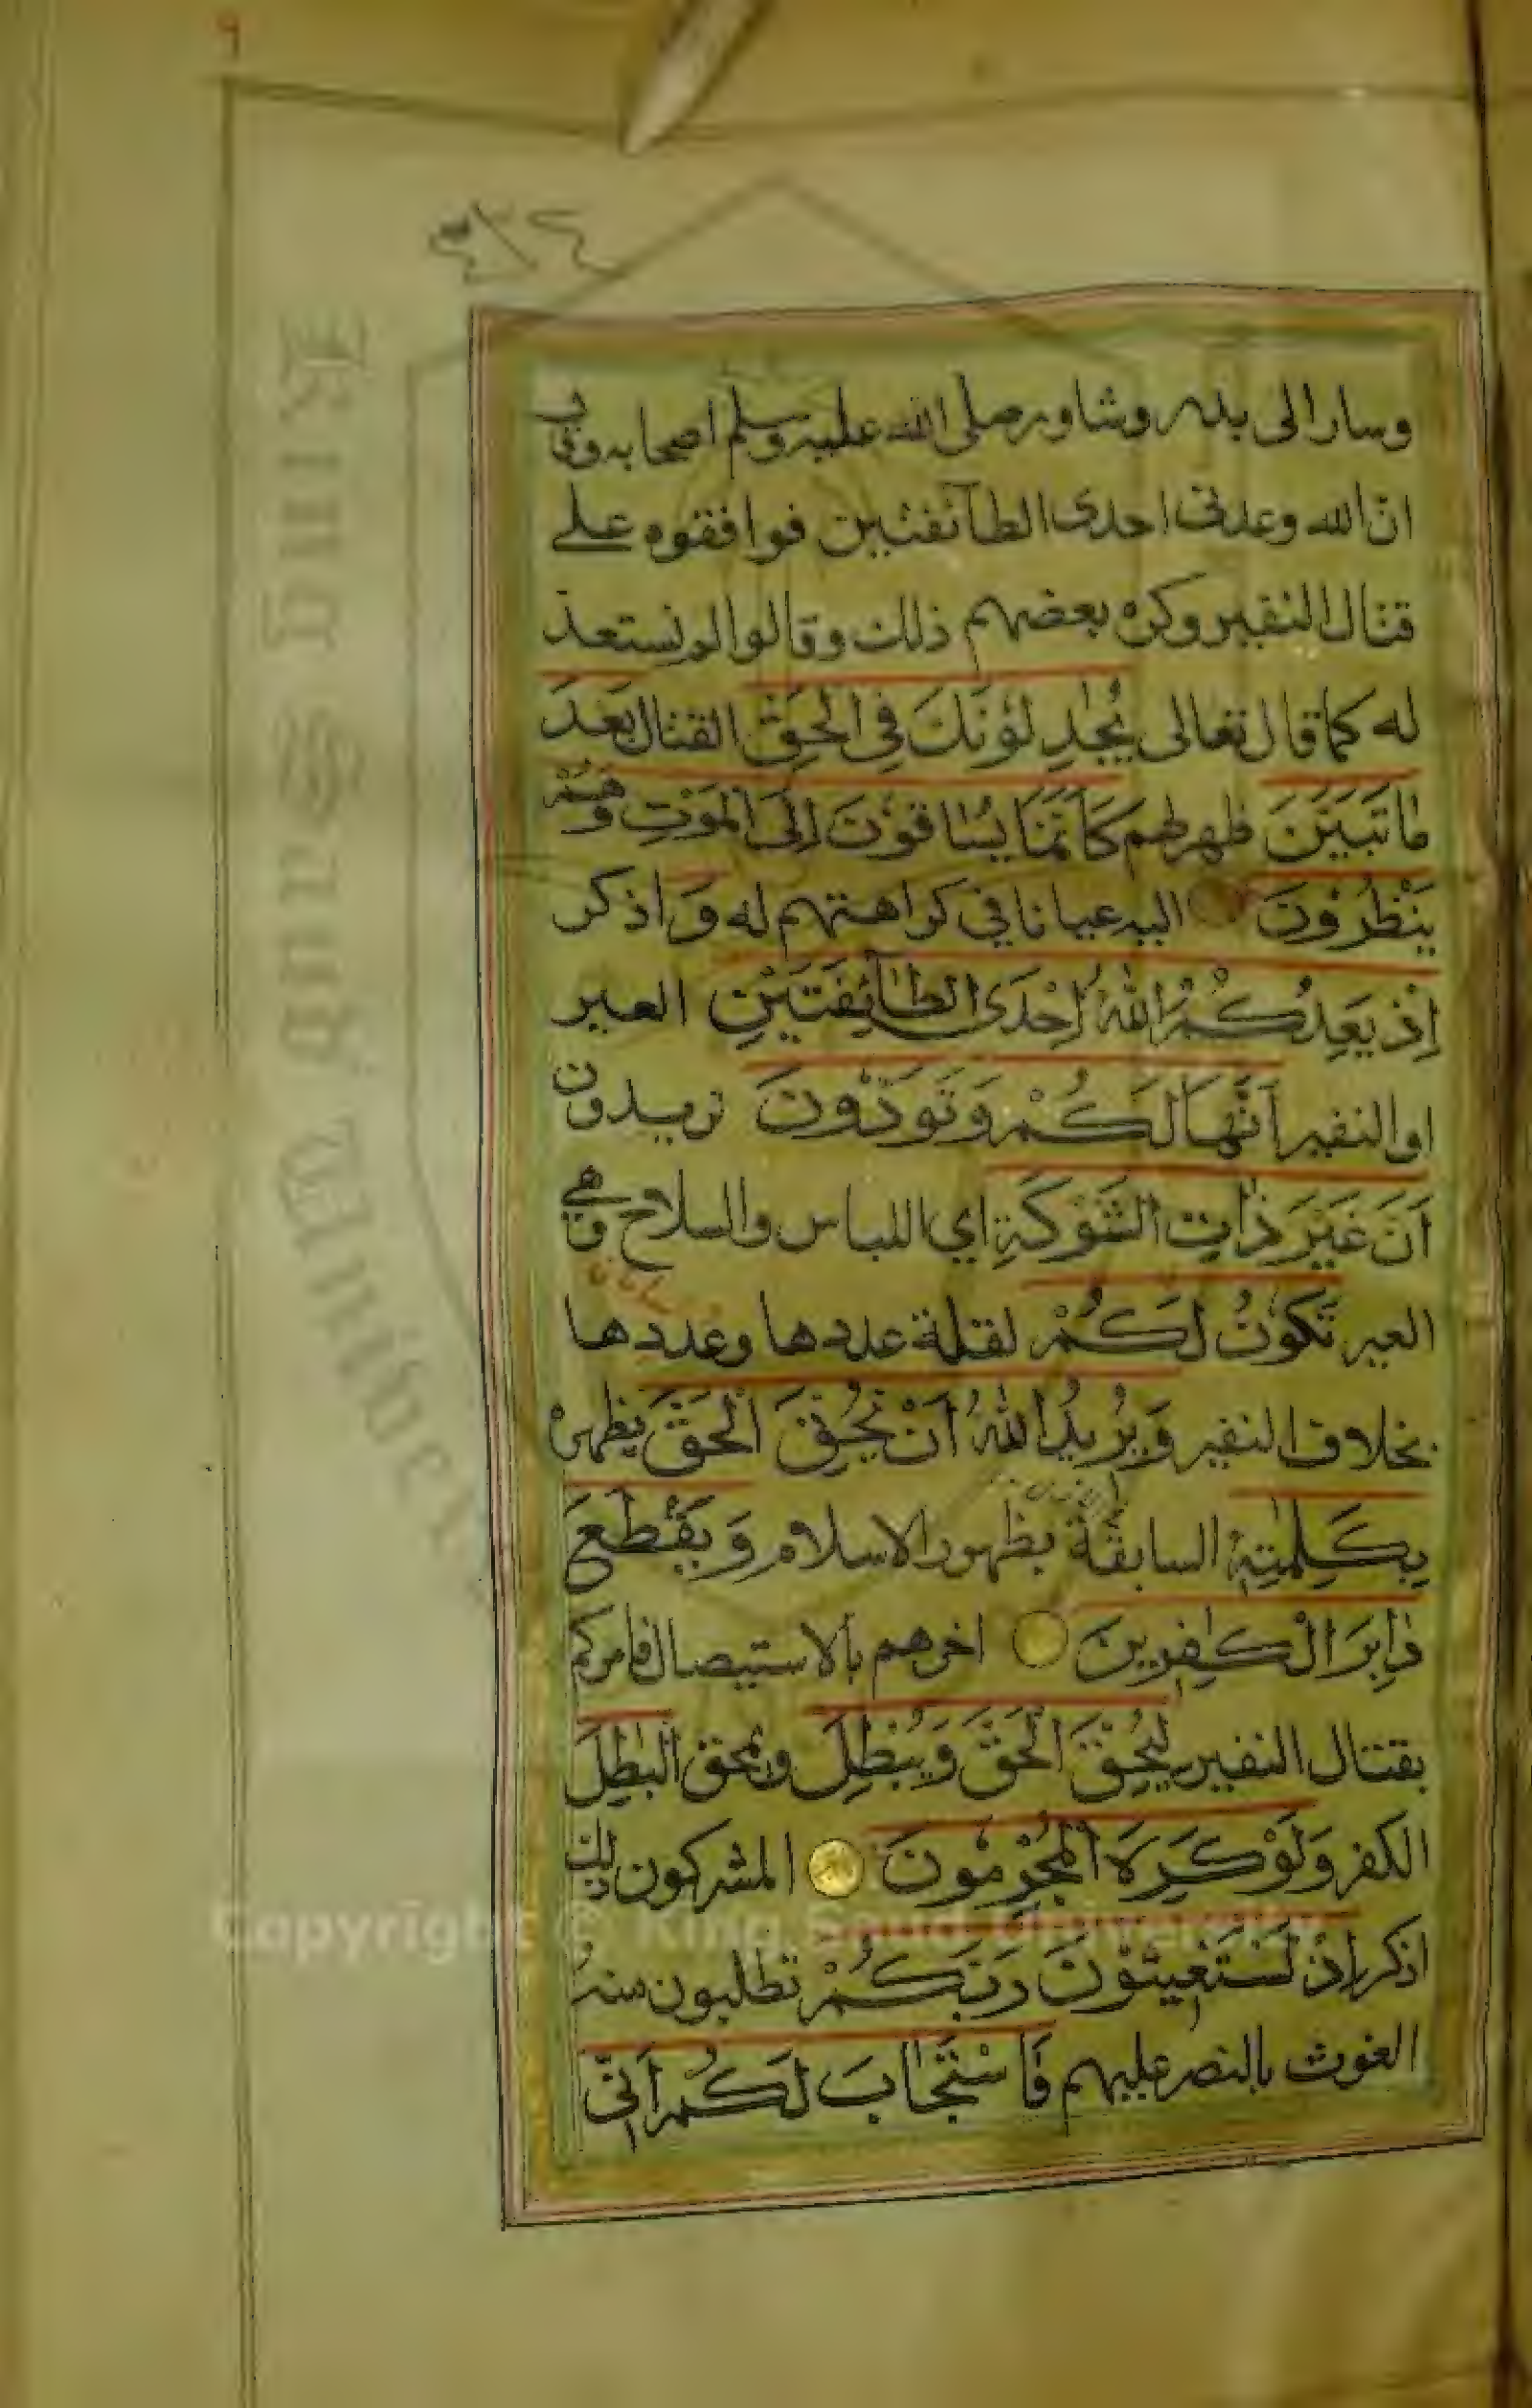 ٩
وسار الى بدر وشاور صلى الله عليه وسلم اصحابه وقال
انّ الله وعدني احدى الطآئفتين فوافقوه على
قتال النفير وكره بعضهم ذلك وقالوا لم نستعد
له كما قال تعالى يُجٰدِلُوْنَكَ فِى الْحَقِّ القتال بَعْدَ
مَا تَبَيَّنَ ظهر لهم كَاَنَّمَا يُسَاقُوْنَ اِلَى الْمَوْتِ وَهُمْ
يَنْظُرُوْنَ اليه عيانا في كراهتهم له وَ اذكر
اِذْ يَعِدُكُمُ اللهُ اِحْدَى الطَّآئِفَتَيْنِ العير
او النفير اَنَّهَا لَكُمْ وَتَوَدُّوْنَ تريدون
اَنَّ غَيْرَ ذَاتِ الشَّوْكَةِ اي اللباس والسلاح وهي
العير تَكُوْنُ لَكُمْ لقلة عددها وعددها
بخلاف النفير وَيُرِيْدُ اللهُ اَنْ يُّحِقَّ الْحَقَّ يظهره
بِكَلِمٰتِهٖ السابقة بظهور الاسلام وَيَقْطَعَ
دَابِرَ الْكٰفِرِيْنَ اخرهم بالاستيصال فامركم
بقتال النفير لِيُحِقَّ الْحَقَّ وَيُبْطِلَ ويمحق الْبٰطِلَ
الكفر وَلَوْ كَرِهَ الْمُجْرِمُوْنَ المشركون ذلك
اذكر اِذْ تَسْتَغِيْثُوْنَ رَبَّكُمْ تطلبون منه
الغوث بالنصر عليهم فَاسْتَجَابَ لَكُمْ اَنِّىْ
King Saud University
Copyright © King Saud University